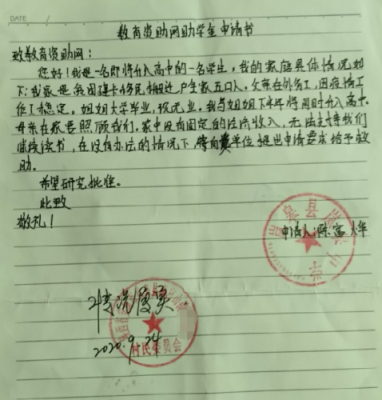 DATE
教育资助网助学金申请书
致教育资助网:
您好!我是一名即将升入高中的一名学生,我的家庭具体情况如
下:我家是贫困建卡移民搬迁户全家五口人,父亲在外务工,因疫情工
作不稳定。姐姐大学毕业,
我与姐姐下半年将同时升入高中。
母亲在家照顾我们,家中没有固定的经济收入,无法支持我们
继续读书,在没有办法的情况下,特向贵单位提出申请要求给予救
助。
希望研究批准。
此致
敬礼!
申请人:陈富
情况属实
2020.9.24
村民委员会